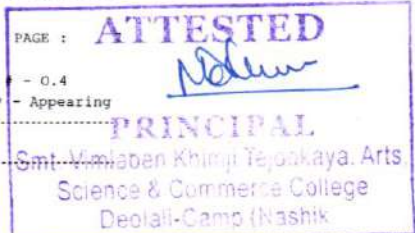 PAGE :
ATTESTED
- 0.4
- Appearing
PRINCIPAL
Smt. Vimlaben Khimji Tejookaya. Arts
Science & Commerce College
Deolali-Camp (Nashik